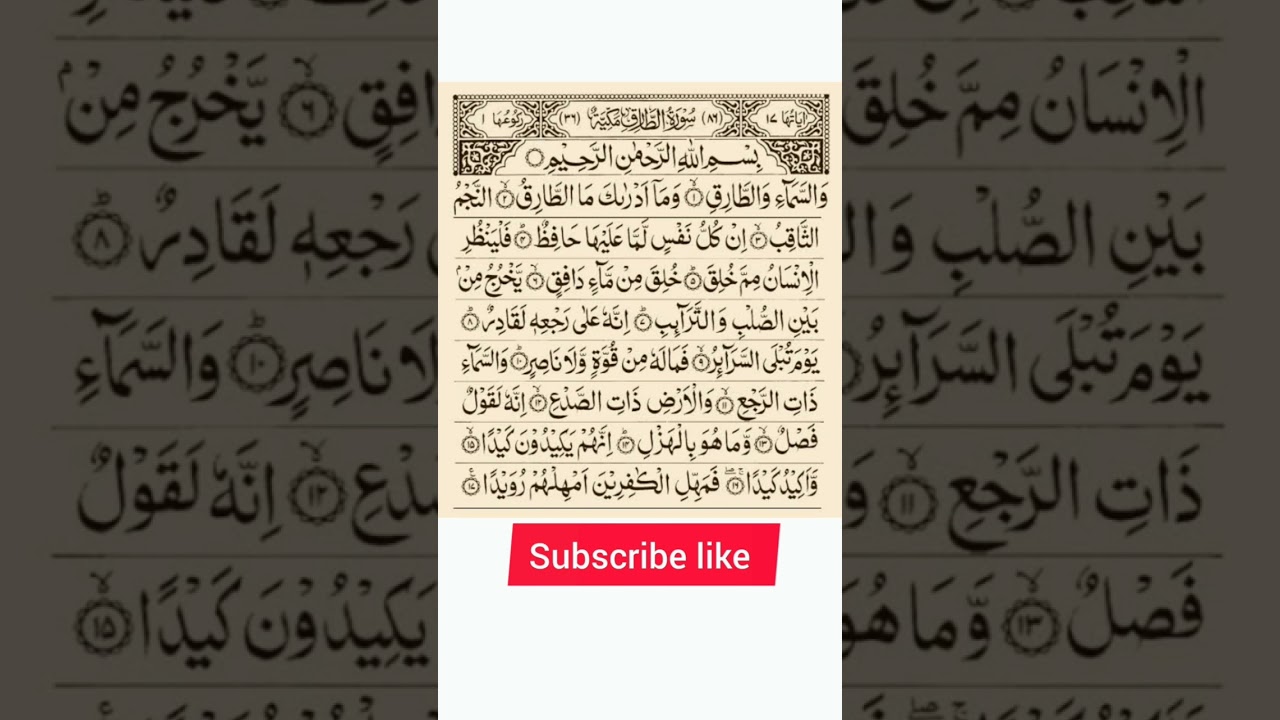 اٰیاتُهَا ١٧ (٨٦) سُوْرَةُ الطَّارِقِ مَكِّيَّةٌ (٣٦) رُكُوْعُهَا ١
بِسْمِ اللّٰهِ الرَّحْمٰنِ الرَّحِيْمِ
وَالسَّمَآءِ وَالطَّارِقِ ۙ١ وَمَآ اَدْرٰىكَ مَا الطَّارِقُ ۙ٢ النَّجْمُ
الثَّاقِبُ ۙ٣ اِنْ كُلُّ نَفْسٍ لَّمَّا عَلَيْهَا حَافِظٌ ؕ٤ فَلْيَنْظُرِ
الْاِنْسَانُ مِمَّ خُلِقَ ؕ٥ خُلِقَ مِنْ مَّآءٍ دَافِقٍ ۙ٦ يَّخْرُجُ مِنْۢ
بَيْنِ الصُّلْبِ وَالتَّرَآئِبِ ؕ٧ اِنَّهٗ عَلٰى رَجْعِهٖ لَقَادِرٌ ؕ٨
يَوْمَ تُبْلَى السَّرَآئِرُ ۙ٩ فَمَا لَهٗ مِنْ قُوَّةٍ وَّلَا نَاصِرٍ ؕ١٠ وَالسَّمَآءِ
ذَاتِ الرَّجْعِ ۙ١١ وَالْاَرْضِ ذَاتِ الصَّدْعِ ۙ١٢ اِنَّهٗ لَقَوْلٌ
فَصْلٌ ۙ١٣ وَّمَا هُوَ بِالْهَزْلِ ؕ١٤ اِنَّهُمْ يَكِيْدُوْنَ كَيْدًا ۙ١٥
وَّاَكِيْدُ كَيْدًا ۚۖ١٦ فَمَهِّلِ الْكٰفِرِيْنَ اَمْهِلْهُمْ رُوَيْدًا ۠١٧
Subscribe like